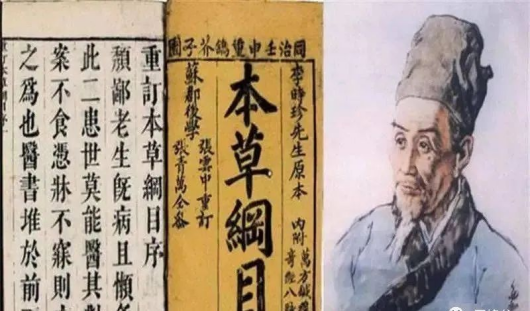 同治壬申重鐫芥子園
李時珍先生原本
內附
萬方鍼
奇經八
本草綱目
蘇郡後學
張雲中重訂
張青萬仝參
重訂本草綱目序
鄙老生旣病且懶
此二患世莫能醫其對
案不食憑牀不寐則
之爲也醫書堆於前